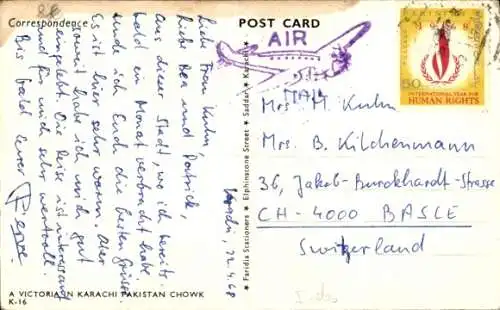 Correspondence
POST CARD
AIR
MAIL
PAKISTAN
50
INTERNATIONAL YEAR FOR
HUMAN RIGHTS
Karachi, 22.4.68
Liebe Frau Kuhn,
Liebe Bea und Patrick,
Aus dieser Stadt, wo ich bereits
bald ein Monat verbracht habe
sende ich Euch die besten Grüsse.
Es ist hier sehr warm. Aber
soweit habe ich mich gut
eingelebt. Die Reise ist interessant
und für mich sehr wertvoll.
Bis bald Euer
Pierre
Mrs. M. Kuhn
Mrs. B. Kilchenmann
36, Jakob-Burckhardt-Strasse
CH-4000 BASLE
Switzerland
Faridia Stationers ★ Elphinstone Street ★ Saddar, Karachi
A VICTORIA IN KARACHI PAKISTAN CHOWK
K-16